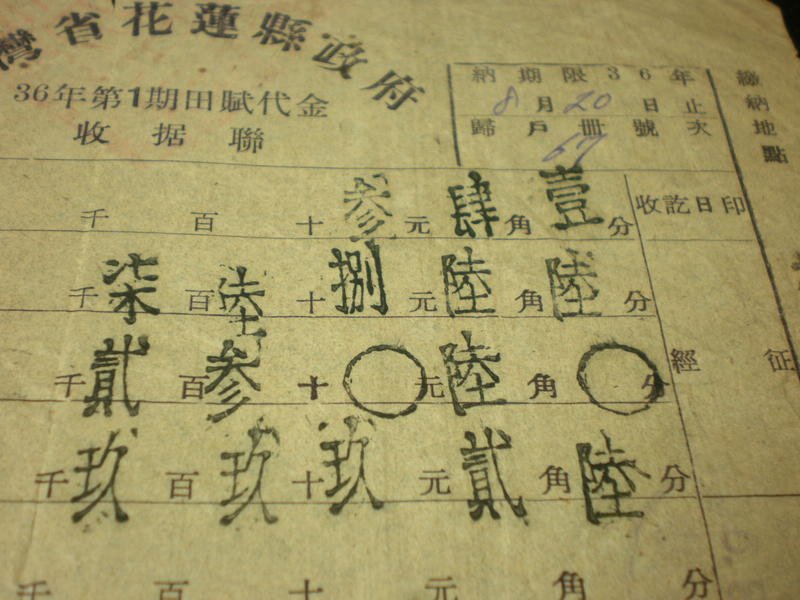 灣省花蓮縣政府
36年第1期田賦代金
收据聯
納期限36年
8月20日止
歸戶冊號次
67
繳納地點
千 百 十 参 元 肆 角 壹 分
收訖日印
千 柒 百 陸 十 捌 元 陸 角 陸 分
千 貳 百 参 十 〇 元 陸 角 〇 分
經征
千 玖 百 玖 十 玖 元 貳 角 陸 分
千 百 十 元 角 分